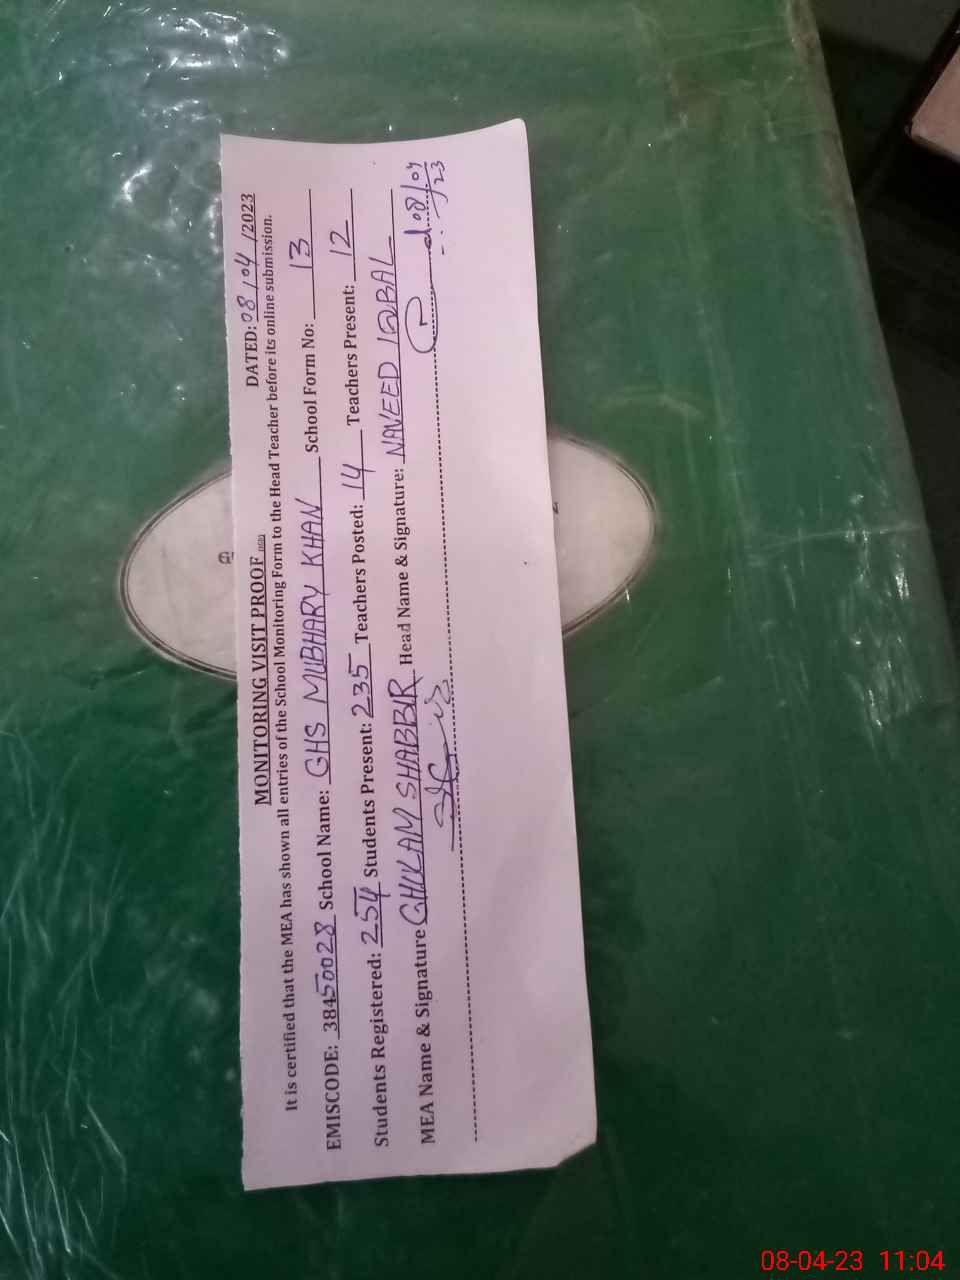 MONITORING VISIT PROOF
DATED: 08/04/2023
It is certified that the MEA has shown all entries of the School Monitoring Form to the Head Teacher before its online submission.
EMISCODE: 38450028 School Name: GHS MUBHARY KHAN School Form No: 13
Students Registered: 254 Students Present: 235 Teachers Posted: 14 Teachers Present: 12
MEA Name & Signature GHULAM SHABBIR Head Name & Signature: NAVEED IQBAL
08/04/23
08-04-23 11:04